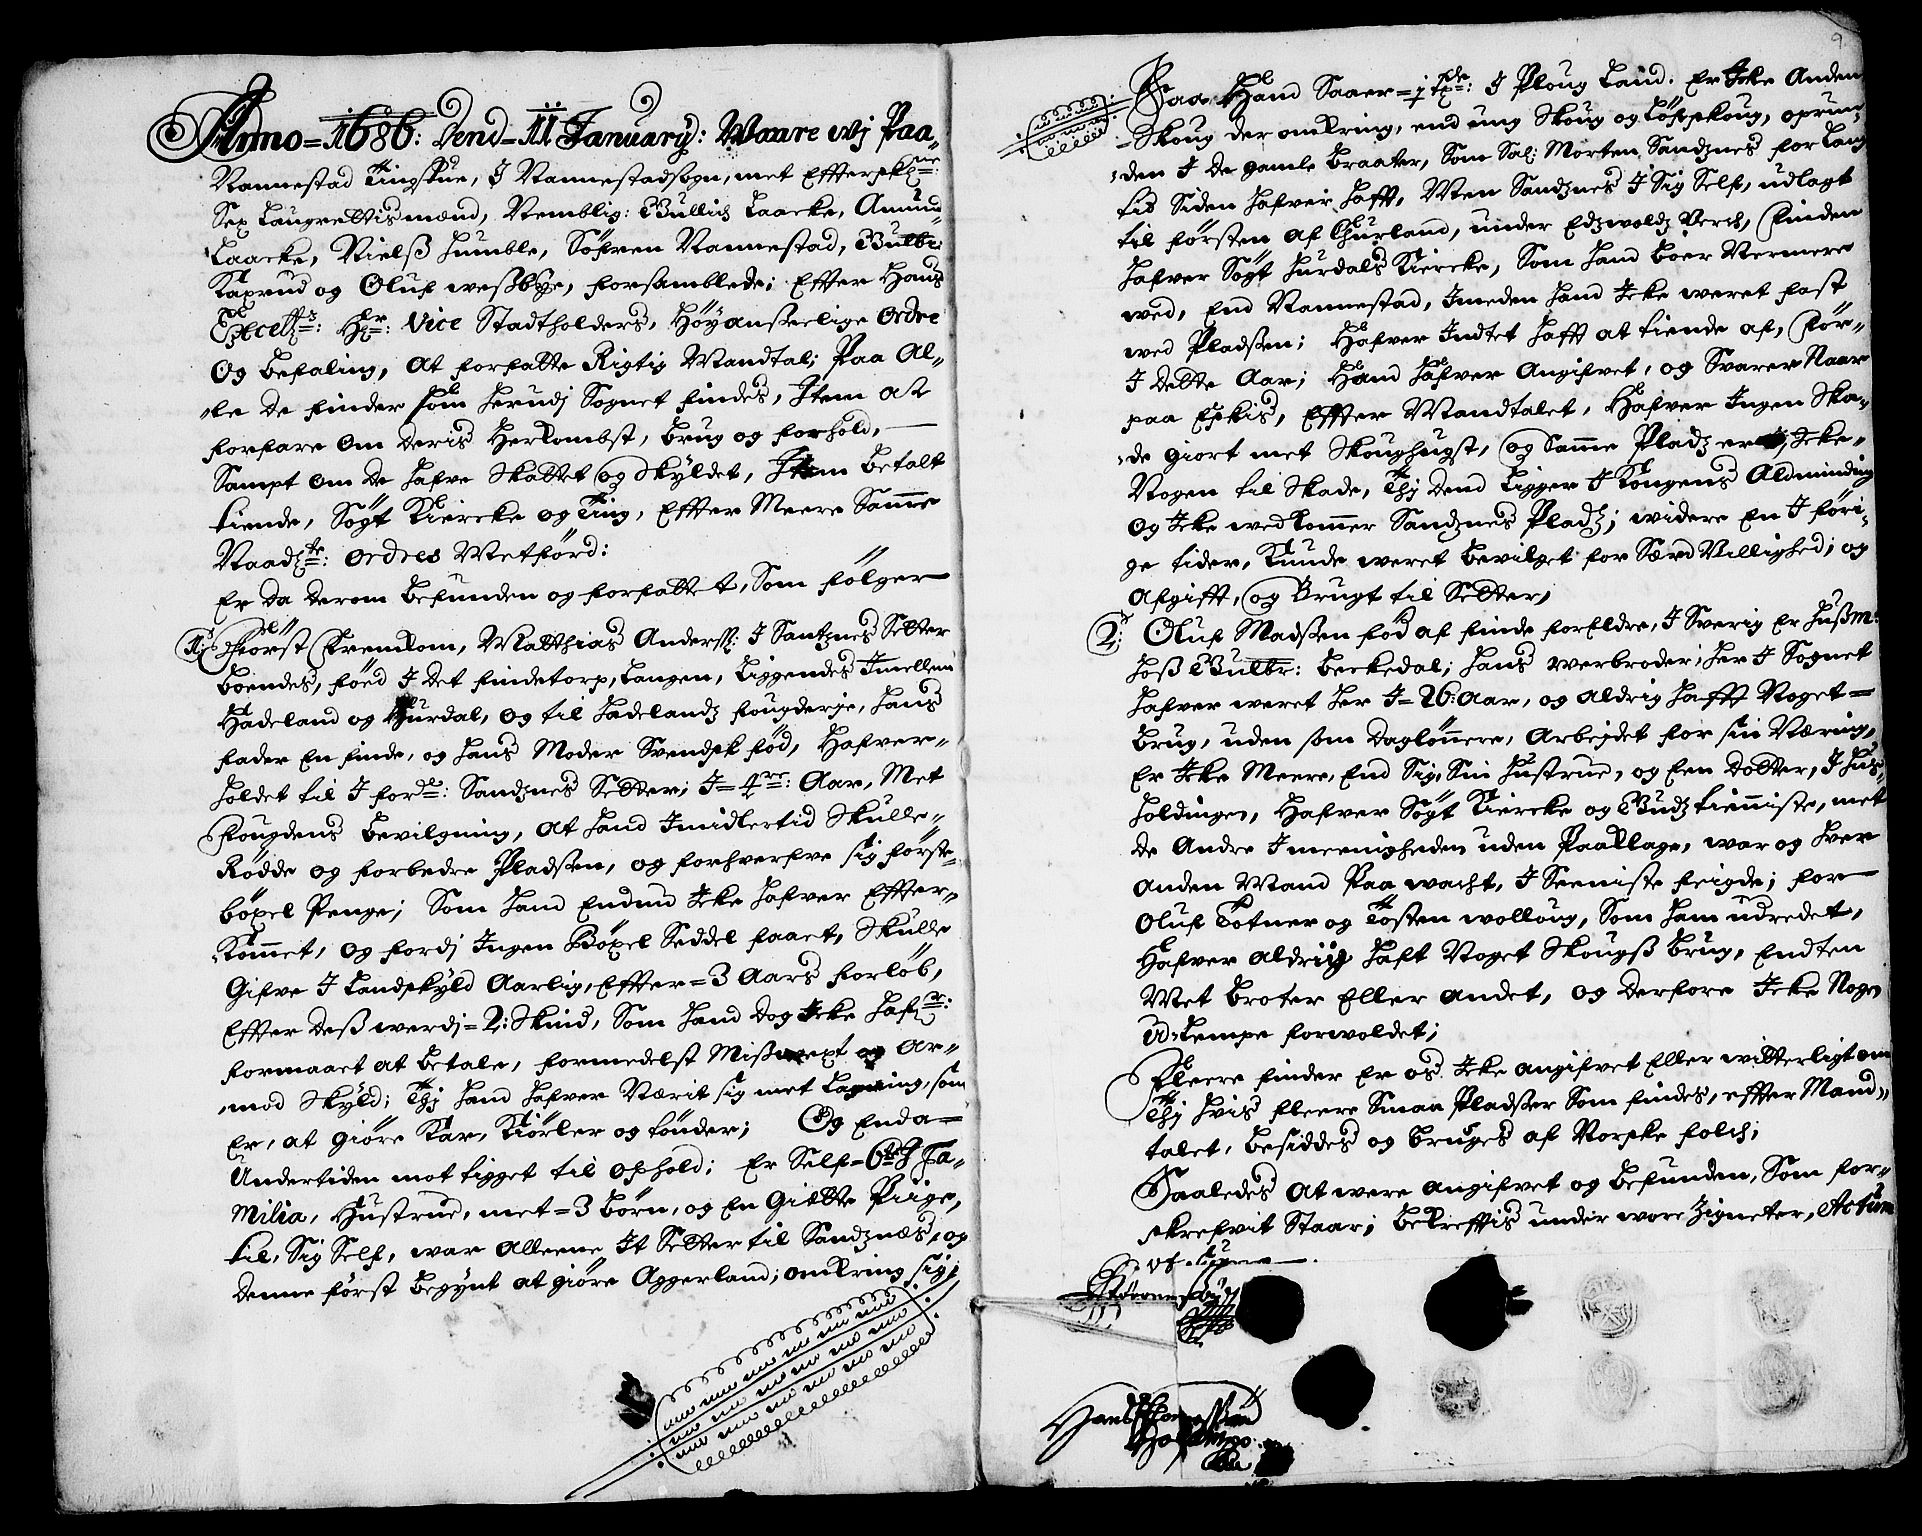 Anno=1686: Dend=11 January: Waare wj Paa
Nannestad Tingstue, J Nannestadsogn, met Effterskr:ne
Sex Laugrettismænd, Nemblig: Gullich Laache, Amund
Laache, Nielß Humble, Söfren Nannestad, Gulbr
Kaxrud og Oluf weßbye, forsamblede; Effter Hans
Excell:tz Hr: Vice Stadtholders, Höyansseelige Ordre
Og befaling, At forfatte Rigtig Mandtal; Paa Al-
le De finder som herudj Sognet findes, Jtem at
forfare om deris Herkombst, brug og forhold,
Sampt om De hafve Skattet og Skyldet, Jtem betalt
tiende, Sögt Kiercke og Ting, Effter Meere Samme
Naadz:te Ordres Metförd:
Er da derom befunden og forfattet, Som fölger
1; Först Fremkom, Matthias Anderss: J Santznes Setter
boendes, föed J det findetorp, Langen, Liggendes Jmellem
Hadeland og Hurdal, og til Hadelandz fougderje, hans
fader En finde, og hans Moder Svendsk föd, Hafver
holdet til J for:de Sandznes Setter; J=4:re Aar, Met
Fougdens bevilgning, At hand Jmidlertid Skulle
Rödde og forbedre Pladssen, og forhverfve sig förste
böxel Penge; Som hand Endnu Jcke hafver Effter-
kommet, og fordj Jngen Böxel Seddel faaet, Skulle
Gifve J Landskyld Aarlig, Effter=3 Aars forlöb,
Effter deß werdj=2: Skind, Som hand dog Jcke haf:r
formaaet at betale, formedelst Mißwext og Ar-
mod Skyld; Thj hand hafver Nærit sig met Lagning, som
Er, at giöre Kar, Kiörler og tönder; Og Enda=
Undertiden mot tigget til ophold; Er Self=6:te J Fa-
milia, Hustrue, met=3 börn, og En Giætte Piige,
til, Sig Self, war Alleene Jt Setter til Sandznæs, og
denne först begynt at giöre Aggerland; omkring sig;
9
Saa Hand Saaer=1 td:e J Ploug Land: Er Jcke Anden
Skoug der omkring, end ung Skoug og Löfskoug, oprun-
den J de gamle braater, Som Sal: Morten Sandznes for lang
tid Siden hafver hafft, Men Sandznes J Sig Self, udlagt
til försten af Churland, under Edzwoldz Verch, Finden
hafver Sögt Hurdals Kiercke, Som hand boer Nermere
wed, End Nannestad, Jmeden hand Jcke weret fast
wed Pladssen; Hafver Jndtet hafft at tiende af, För-
J dette Aar; Hand hafver Angifvet, og Svarer Naar
paa Eskis, Effter Mandtalet, Hafver Jngen Ska-
de giort met Skoughugst, og Samme Pladz er Jcke
Nogen til Skade, Thj dend Ligger J Kongens Aldminding
Og Jcke wedkommer Sandznes Pladz; widere En J föri-
ge tider, Kunde weret bevilget for Færd Villighed; og
Afgifft, og Brugt til Setter,
2; Oluf Madssen föd af finde forEldre, J Sverig Er Hußm:
hoß Gulbr: beckedal; hans werbroder; her J Sognet
hafver weret her J=26: Aar, og Aldrig hafft Noget=
brug, uden som daglönnere, Arbejdet for sin Næring,
Er Jcke Meere, End Sig, Sin Hustrue, og Een dotter, J Hus-
holdingen, Hafver Sögt Kiercke og Gudz tienniste, met
de Andre J meenigheden uden Paaklage, war og hver
anden Mand Paa wacht, J Seeniste feigde; for
Oluf Totner og Tosten wolloug, Som ham udredet,
Hafver Aldrig hafft Noget Skougß brug, Endten
Met broter Eller andet, og derfore Jcke Nogen
U-Lempe forwoldet;
Fleere finder Er os Jcke Angifvet Eller witterligt om
Thj hvis fleere Smaa Pladsser Som findes, effter Mand-
talet, besiddes og bruges af Norske folch;
Saaledes At were angifvet og befunden, Som for-
skrefvit Staar; bekrefftis under wore Zigneter, Actum